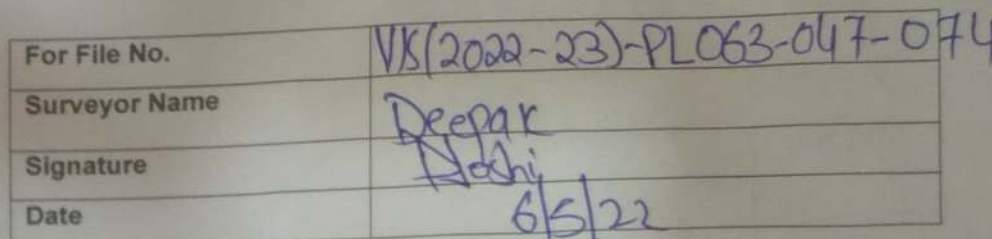 For File No. VIS(2022-23)-PL063-047-074
Surveyor Name Deepak
Signature Joshi
Date 6/5/22